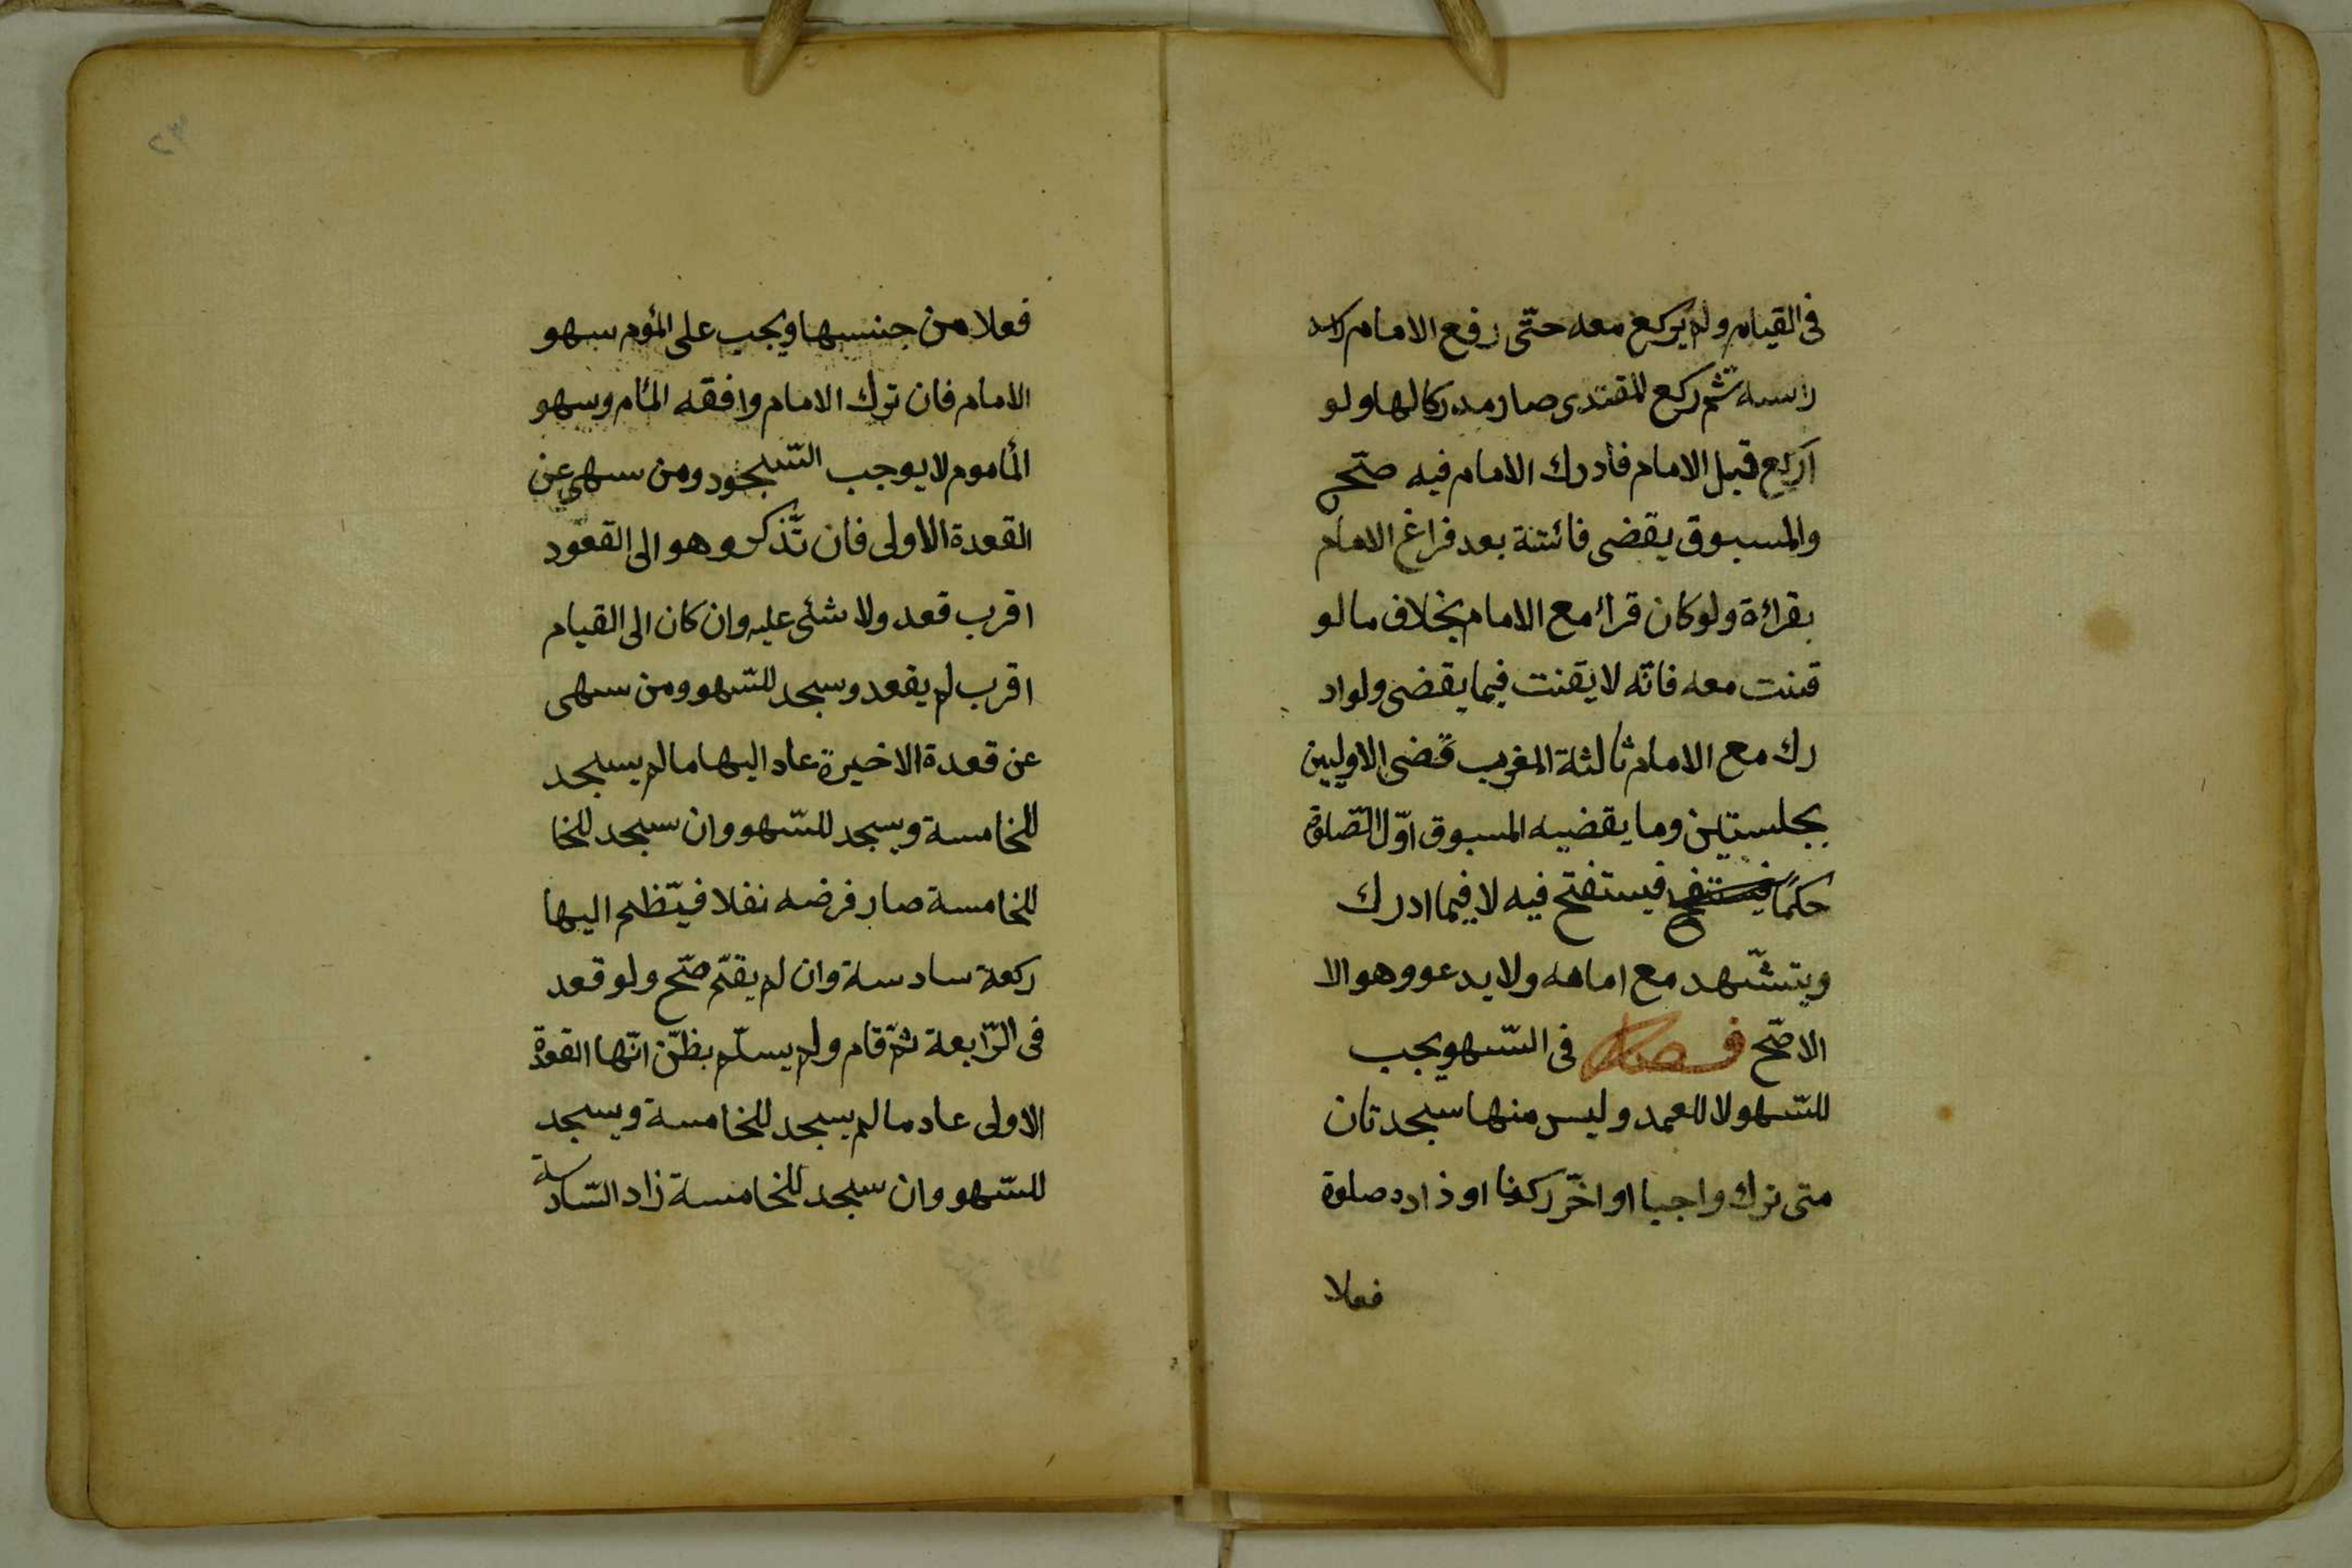 فى القيام ولم يركع معه حتّى رفع الامام
راسه ثم ركع المقتدى صار مدركا لها ولو
اركع قبل الامام فادرك الامام فيه صّح
والمسبوق يقضى فائتة بعد فراغ الامام
بقرائة ولو كان قرأ مع الامام بخلاف ما لو
قنت معه فانّه لا يقنت فيما يقضى ولواد
رك مع الامام ثالثة المغرب قضى الاوليين
بجلستين وما يقضيه المسبوق اوّل الصّلوة
حكمًا فيستفتح فيه لا فيما ادرك
ويتشّهد مع امامه ولا يدعو وهو الا
الاصّح فصل فى السّهو يجب
للسّهو لا للعمد وليس منها سجدتان
متى ترك واجبا او اخّر ركنا او زاد صلوة
فعلا
٣٢
فعلا من جنسها ويجب على المؤم سهو
الامام فان ترك الامام وافقه المأم وسهو
المأموم لا يوجب السّجود ومن سهى عن
القعدة الاولى فان تّذكر وهو الى القعود
اقرب قعد ولا شئى عليه وان كان الى القيام
اقرب لم يقعد وسجد للسّهو ومن سهى
عن قعدة الاخيرة عاد اليها ما لم يسجد
للخامسة ويسجد للسّهو وان سجد للخا
للخامسة صار فرضه نفلا فيّظم اليها
ركعة سادسة وان لم يقّم صّح ولو قعد
فى الرّابعة ثمّ قام ولم يسلّم بظنّ انّها القعودة
الاولى عاد ما لم يسجد للخامسة ويسجد
للسّهو وان سجد للخامسة زاد السّادسة